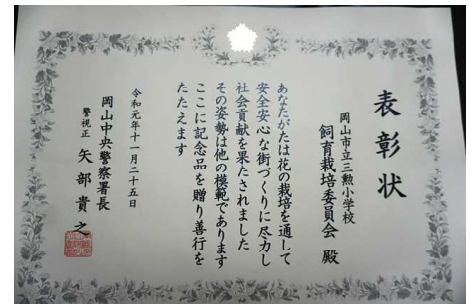 表彰状
岡山市立三勲小学校
飼育栽培委員会 殿
あなたがたは花の栽培を通して
安全安心な街づくりに尽力し
社会貢献を果たされました
その姿勢は他の模範であります
ここに記念品を贈り善行を
たたえます
令和元年十一月二十五日
岡山中央警察署長
警視正 矢部貴之